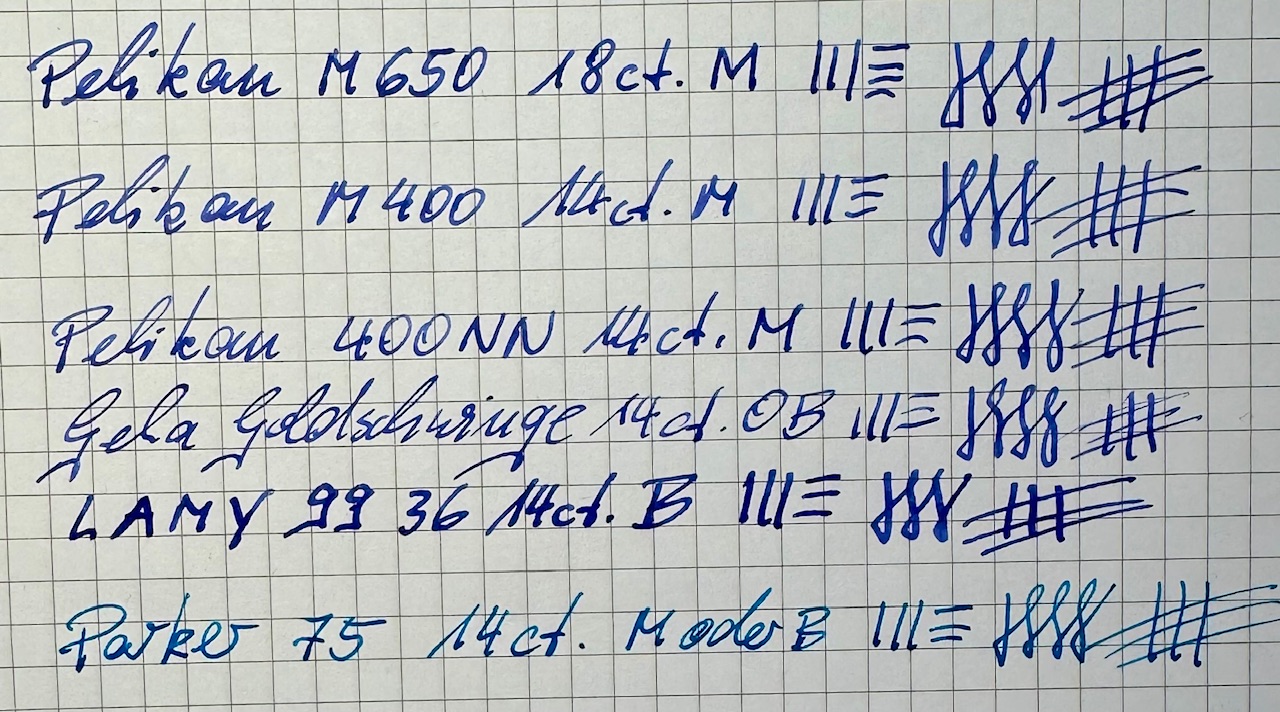 Pelikan M650 18ct. M
Pelikan M400 14ct. M
Pelikan 400NN 14ct. M
Geha Goldschwinge 14ct. OB
LAMY 99 36 14ct. B
Parker 75 14ct. M oder B